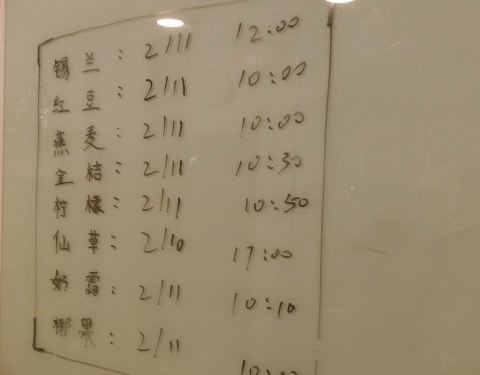 锡兰：2/11 12:00
红豆：2/11 10:00
燕麦：2/11 10:00
金桔：2/11 10:30
柠檬：2/11 10:50
仙草：2/10 17:00
奶霜：2/11 10:10
椰果：2/11